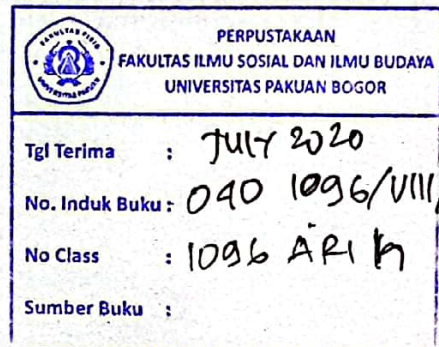 PERPUSTAKAAN
FAKULTAS ILMU SOSIAL DAN ILMU BUDAYA
UNIVERSITAS PAKUAN BOGOR
Tgl Terima : JULY 2020
No. Induk Buku : 040 1096/VIII
No Class : 1096 ARI
Sumber Buku :